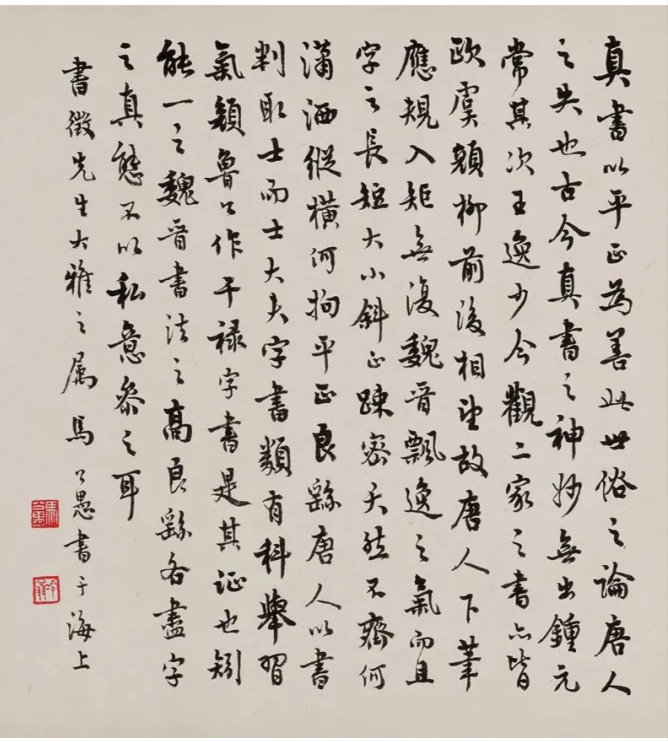 真書以平正為善此世俗之論唐人
之失也古今真書之神妙無出鍾元
常其次王逸少今觀二家之書亦皆
歐虞顏柳前後相望故唐人下筆
應規入矩無復魏晉飄逸之氣而且
字之長短大小斜正疎密天然不齊何
瀟洒縱橫何拘平正良繇唐人以書
判取士而士大夫字書類有科舉習
氣顏魯公作干祿字書是其証也矧
能一之魏晉書法之高良繇各盡字
之真態不以私意參之耳
書徵先生大雅之屬馬公愚書于海上